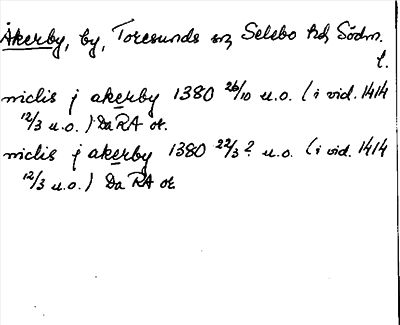 Åkerby, by, Toresunds sn, Selebo hd, Södm.
l.
niclis j akerby 1380 26/10 u.o. (i vid. 1414
12/3 u.o.) Da RA or.
niclis j akerby 1380 22/3? u.o. (i vid. 1414
12/3 u.o.) Da RA or.